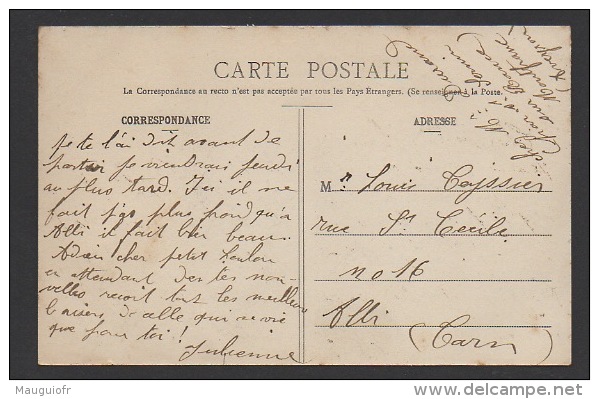 CARTE POSTALE
La Correspondance au recto n'est pas acceptée par tous les Pays Etrangers. (Se renseigner à la Poste.
CORRESPONDANCE
je te l'ai dit avant de
partir je viendrai jeudi
au plus tard. Ici il ne
fait pas plus froid qu'à
Albi il fait bien beau.
Adieu cher petit Loulou
en attendant de tes nou-
velles reçoit tout les meilleurs
baisers de celle qui ne vie
que pour toi!
Julienne
ADRESSE
Mr. Louis
rue Ste Cécile
no 16
Albi
(Tarn)
chez Mr
Mauguiofr
www.delcampe.net